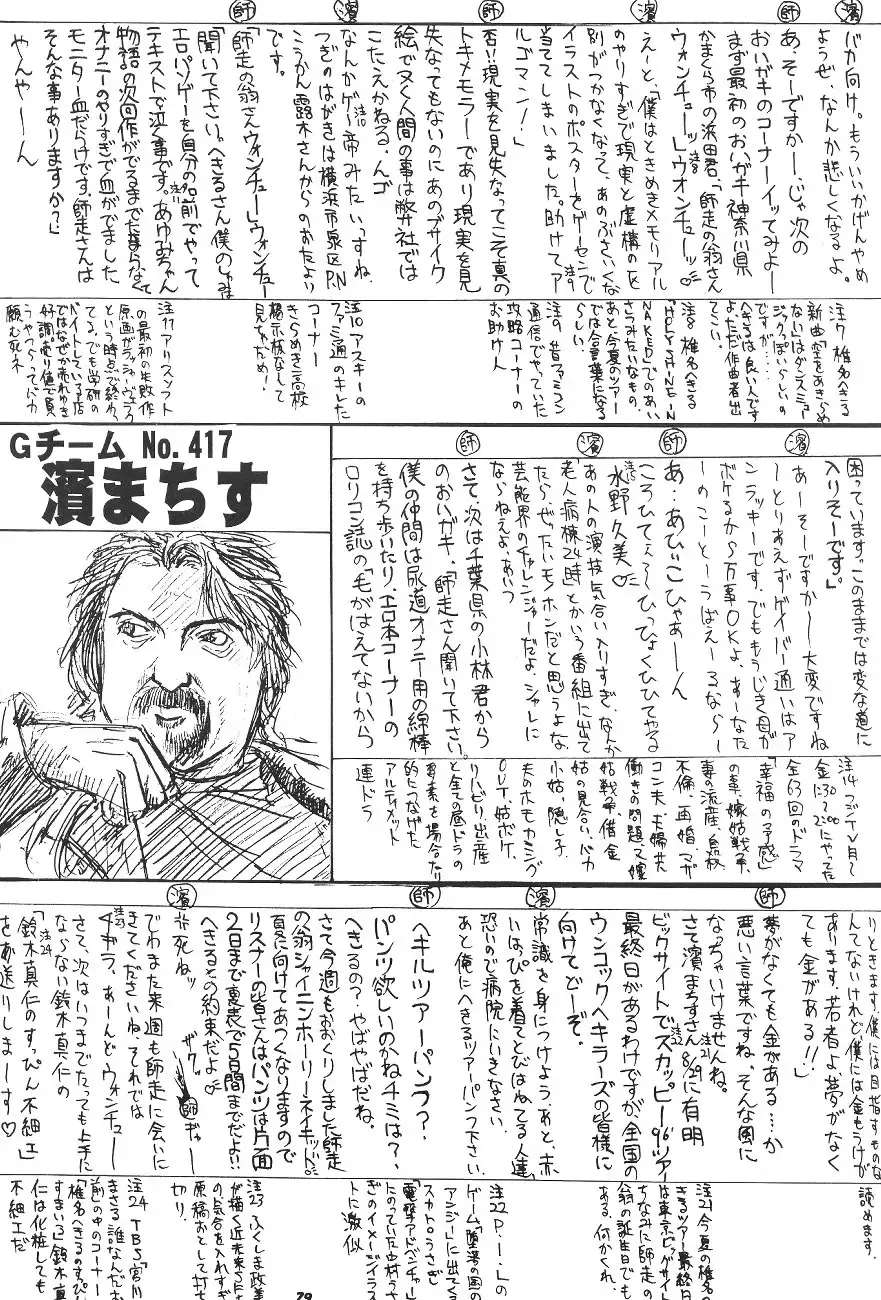 濱
バカ向け。もういいかげんやめ
ようぜ、なんか悲しくなるよ。
師
あ、そーですかー、じゃ次の
おいガキのコーナーイッてみよー
まず最初のおいガキ神奈川県
かまくら市の浜田君、「師走の翁さん
ウォンチューッ」ウォンチューッ♡
濱
えーと、「僕はときめきメモリアル
のやりすぎで現実と虚構のく
別がつかなくなって、あのぶさいくな
イラストのポスターをゲーセンで
当ててしまいました。助けてア
ルゴマン!」
師
否!!現実を見失なってこそ真の
トキメモラーであり現実を見
失なってもないのにあのブサイク
絵でヌく人間の事は弊社では
こたえかねる、んゴ
濱
なんかゲー帝みたいっすね、
つぎのはがきは横浜市泉区P.N
こうかん露木さんからのおたより
です。
師
「師走の翁さんウォンチュー」ウォンチュー
「聞いて下さい。へきるさん僕のしゅみ
エロパソゲーを自分の名前でやって
テキストで泣く事です。あゆみちゃん
物語の次回作がでるまでたまらなくて
オナニーのやりすぎで血がでました
モニター血だらけです。師走さんは
そんな事ありますか?」
やんやーーん
注7 椎名へきる
新曲「空をあきらめ
ない」はダンスミュー
ジックっぽいらしいの
ですが……
へきるは良い人です
よ、ただ作曲者出
てこい。
注8 椎名へきる
「HOLY SHINE IN
NAKED」でのあい
さつみたいなもの。
あと今夏のツアー
では合言葉になる
らしい。
注9 昔ファミコン
通信でやっていた
攻略コーナーの
お助け人
注10 アスキーの
ファミ通のキレた
コーナー
きらめき高校
掲示板なんして
見ちゃだめ!
注11 アリスソフト
の最初の失敗作
原画がラッシャーヴェラク
という時点で終わっ
てる。でも学研の
バイトしている店
ではなぜか売れゆき
好調売り値で負
うやつらってバカ
頼む死ネ
Gチーム No.417
濱まちす
困っています。このままでは変な道に
入りそーです。」
濱
あーそーですかー大変ですね
ーとりあえずゲイバー通いはア
ンラッキーです。でももうじき母が
ボケるから万事OKよ、あーなた
ーのこーとーうばえーるならー
師
あ…あひぃこひゃあーん
ころひてょろ～ひっひょくひひてやる
濱
水野久美♡
あの人の演技気合い入りすぎ、なんか
老人病棟24時とかいう番組に出て
たら、ぜったいモノホンだと思うよな
芸能界のチャレンジャーだよ、シャレに
ならねえよ、あいつ
師
さて、次は千葉県の小林君から
のおいガキ、「師走さん聞いて下さい。
僕の仲間は尿道オナニー用の綿棒
を持ち歩いたり、エロ本コーナーの
ロリコン誌の「毛がはえてないから
注14 フジTV月～
金1:30～2:00にやってた
全63回のドラマ
「幸福の予感」
の事、嫁姑戦争、
妻の流産、自殺
不倫、再婚、マザ
コン夫、主婦共
働きの問題、又嫁
姑戦争借金
姑の見合い、バカ
小姑、隠し子
夫のホモカミング
OUT、姑ボケ、
リハビリ出産
と全ての昼ドラの
要素を場合たり
的につなげた
アルティメット
連ドラ
りときます。僕には目指すものな
んてないけれど僕には金もうけが
あります。若者よ夢がなく
ても金がある!!」
師
夢がなくても金がある……か
悪い言葉ですね、そんな風に
なっちゃいけませんね。
さて濱まちすさん8/29に有明
ビックサイトでスカッピー96ツアー
最終日があるわけですが、全国の
ウンコックヘキラーズの皆様に
向けてどーぞ。
濱
常識を身につけよう、あと、赤
いはっぴを着てとびはねてる人達
恐いので病院にいきなさい
あと俺にへきるツアーパンフ下さい
師
ヘキルツアーパンフ?
パンツ欲しいのかねチミは?
へきるの?、やばやばだね。
さて今週もおくりしました師走
の翁シャイニンホーリーネイキッド。
夏に向けてあつくなりますので
リスナーの皆さんはパンツは片面
2日まで裏表で5日間までだよ!!
へきるとの約束だよ♡
濱
※死ねッ ザクッ 師 ギャー
でわまた来週も師走に会いに
きてくださいね、それでは
チャオラ、あーんどウォンチュー
さて、次はいつまでたっても上手に
ならない鈴木真仁の
「鈴木真仁のすっぴん不細工」
をお送りしまーす♡
読めます。
注21 今夏の椎名へ
きるツアー最終日
は東京ビッグサイト
ちなみに師走の
翁の誕生日でも
ある、何かくれ。
注22 P.I.L.の
ゲーム「堕落の国の
アンジー」に出てくる
スカトロうさぎ
電撃アドベンチャー
にのっていた中村うさ
ぎのイメージイラス
トに激似
注23 ふくしま政美
が描く近未来うた
の気合を入れすぎ
原稿おとして打ち
切り。
注24 TBS「宮川
まさる 誰なんだお
前」の中のコーナー
「椎名へきるのすっぴん
すまいる」鈴木真
仁は化粧しても
不細工だ
79